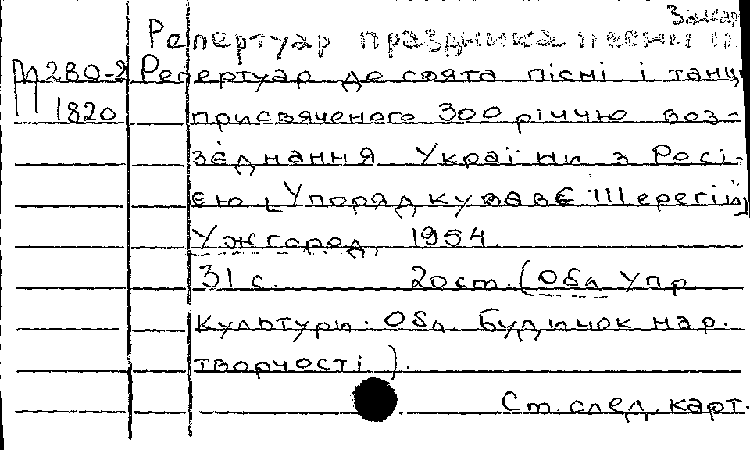 Закар
Репертуар праздника песни и
П 280-2 Репертуар до свята пісні і танц
1820 присвяченого 300 річчю воз-
з'єднання України з Росі-
єю [Упорядкував Є Шерегій]
Ужгород, 1954
31 с. 20 ст. (Обл упр
культури. Обл. будинок нар.
творчості).
См. след. карт.